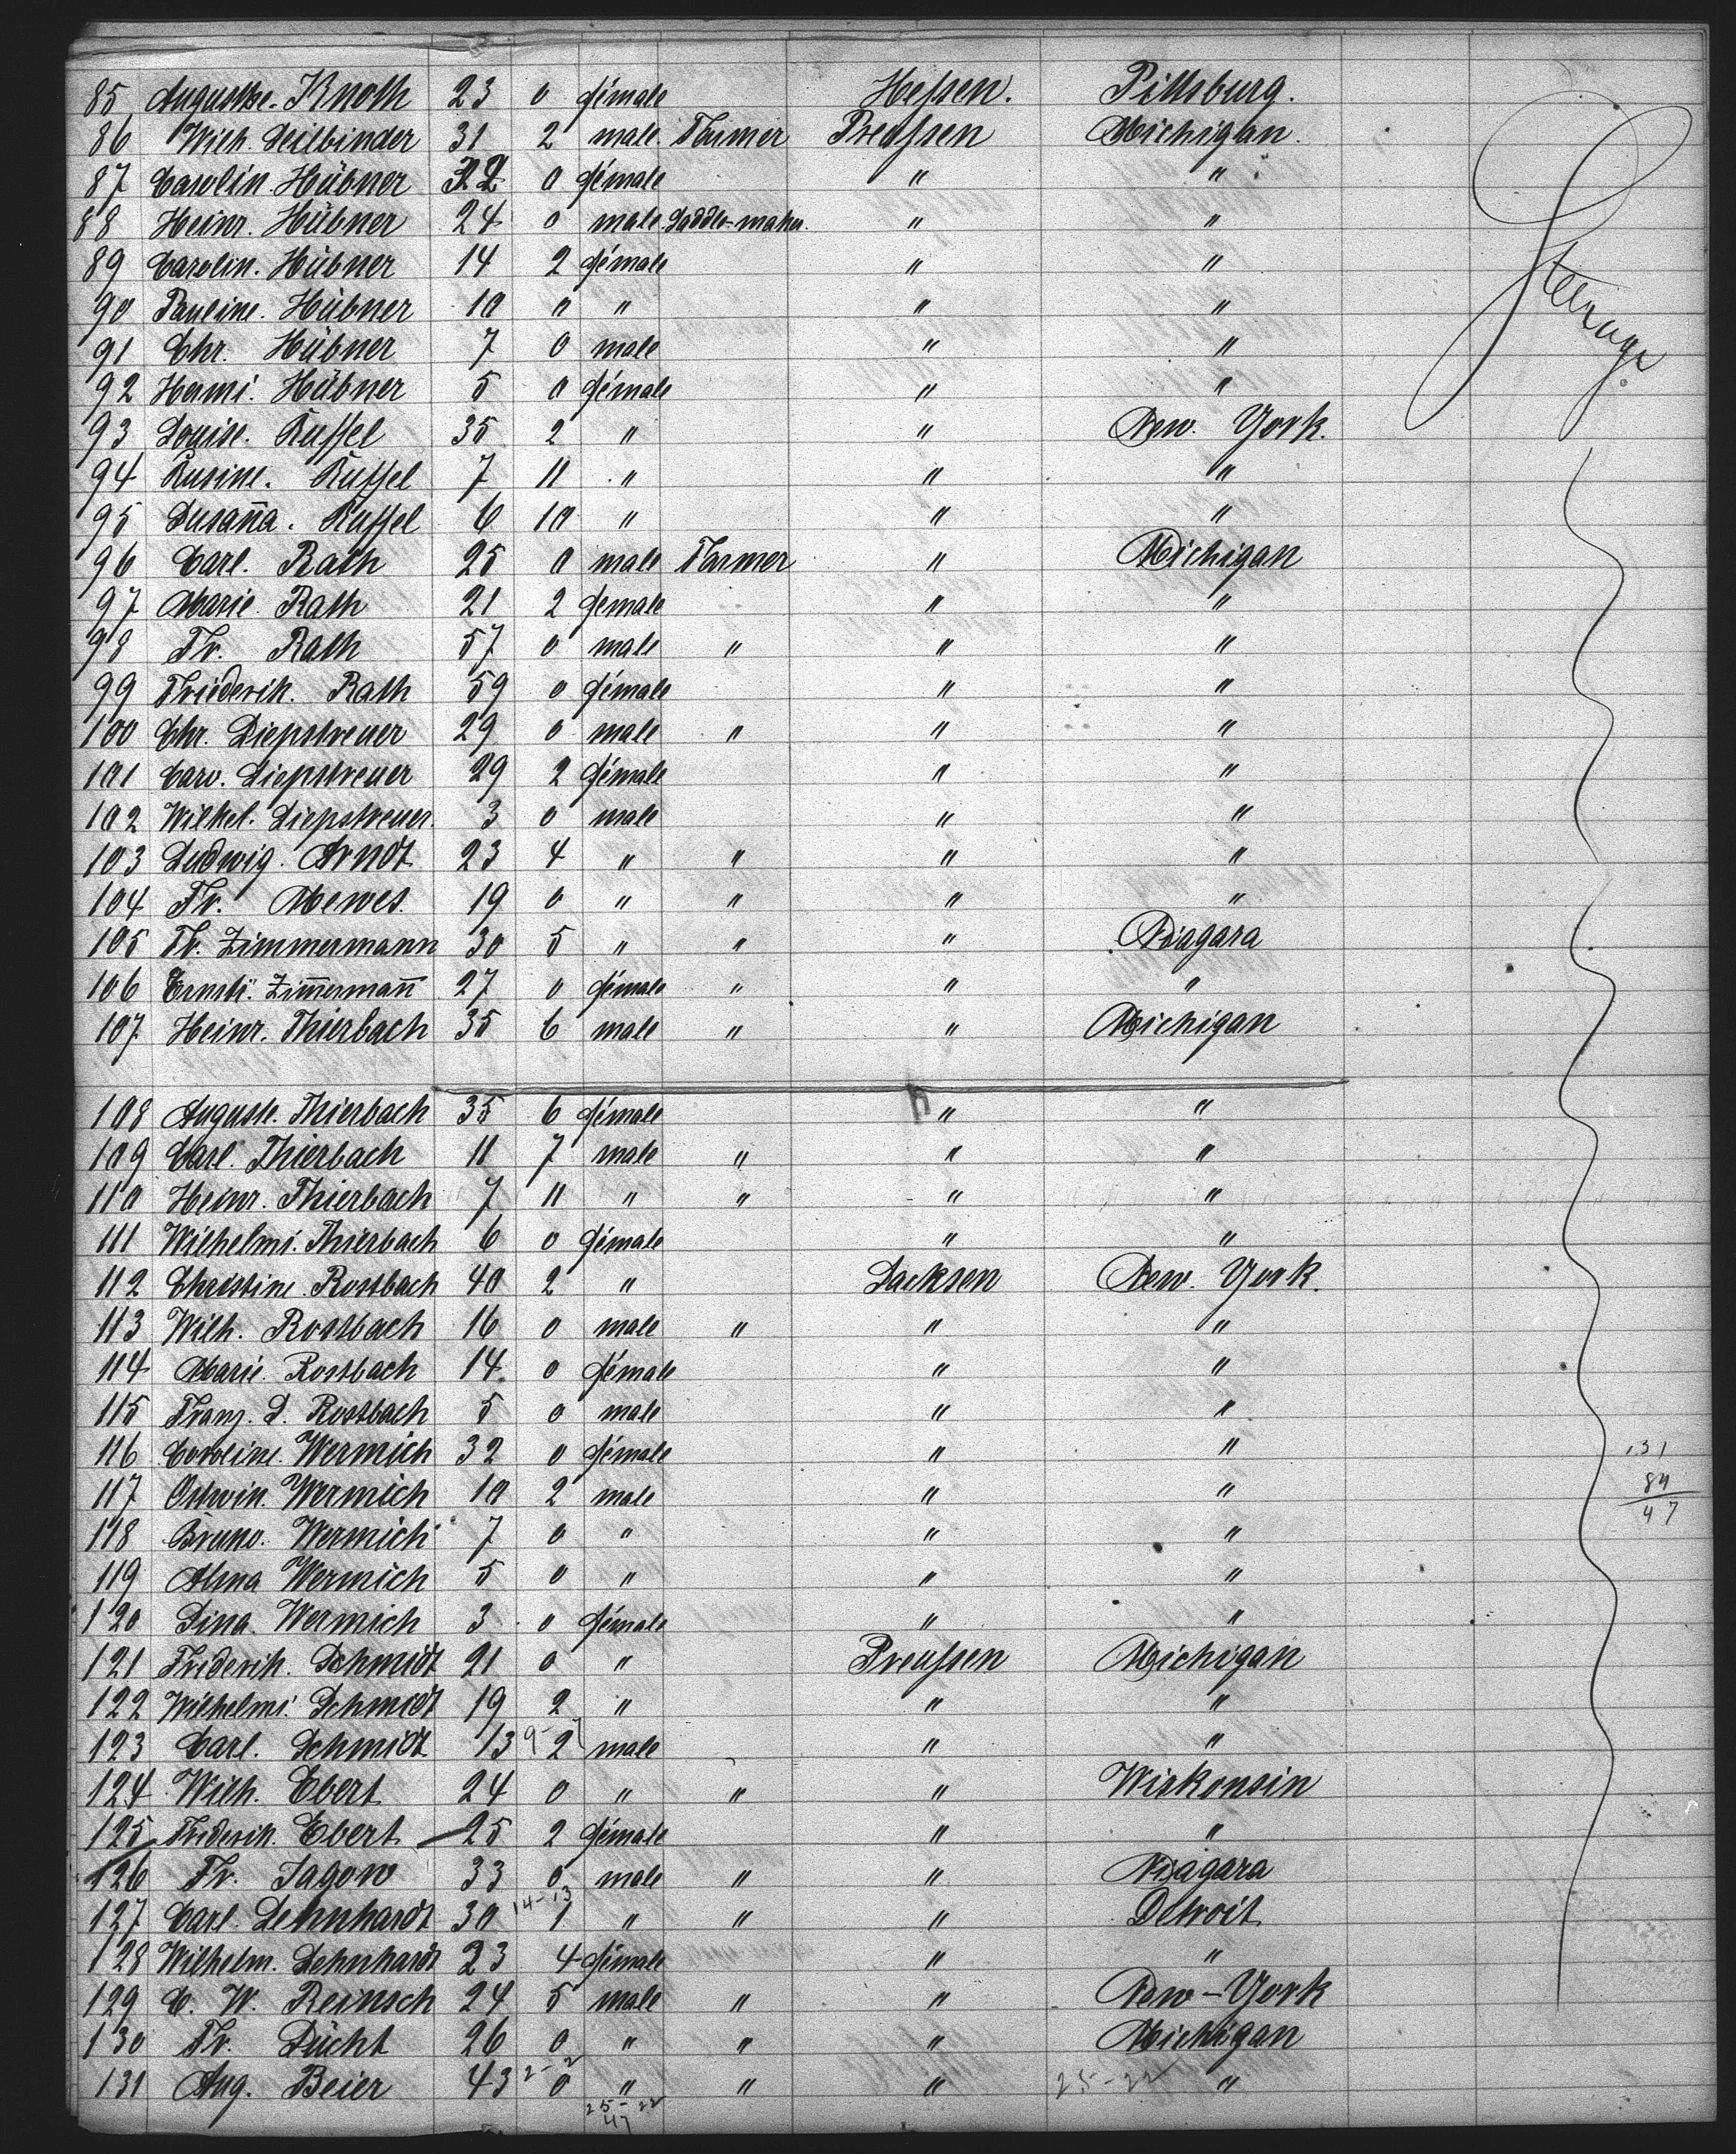 85 Auguste. Knoth 23 0 female Hessen. Pittsburg.
86 Wilh. Seilbinder 31 2 male. Farmer Preussen Michigan.
87 Carolin. Hübner 0 female " "
88 Heinr. Hübner 24 0 male. Saddle-maker. " "
89 Carolin. Hübner 14 2 female " "
90 Pauline. Hübner 10 0 " " "
91 Chr. Hübner 7 0 male " "
92 Hermi. Hübner 5 0 female " "
93 Louise. Russel 35 2 " " New. York.
94 Rusine. Russel 7 11 " " "
95 Susaña. Russel 6 10 " " "
96 Carl. Rath 25 0 male Farmer " Michigan
97 Marie. Rath 21 2 female " "
98 Fr. Rath 57 0 male " " "
99 Friederik. Rath 59 0 female " "
100 Chr. Diepstreuer 29 0 male " " "
101 Caro. Diepstreuer 29 2 female " "
102 Wilhel. Diepstreuer. 3 0 male " "
103 Ludwig. Arndt 23 4 " " " "
104 Fr. Mewes. 19 0 " " " "
105 Fr. Zimmermann 30 5 " " " Niagara
106 Ernsti. Zim̄erman̄ 27 0 female " " "
107 Heinr. Thierbach 35 6 male " " Michigan
108 Auguste. Thierbach 35 6 female " "
109 Carl. Thierbach 11 7 male " " "
110 Heinr. Thierbach 7 11 " " " "
111 Wilhelmi. Thierbach 6 0 female " "
112 Christine. Rossbach 40 2 " Sachsen New. York.
113 Wilh. Rossbach 16 0 male " " "
114 Marie. Rossbach 14. 0 female " "
115 Franz. D. Rossbach 5 0 male " "
116 Caroline. Wermich 32 0 female " "
117 Oswin. Wermich 10 2 male " "
118 Bruno. Wermich 7 0 " " "
119 Alma Wermich 5 0 " " "
120 Lina. Wermich 3 0 female " "
121 Friderik. Schmidt 21 0 " Preussen Michigan
122 Wilhelmi. Schmidt 19 2 " " "
123 Carl. Schmidt 13 9-7 2 male " "
124 Wilh. Ebert 24 0 " " " Wiskonsin
125 Friderik. Ebert 25 2 female " "
126 Fr. Jagow 33 0 male " " Niagara
127 Carl. Lehnhardt 30 14-13 1 " " " Detroit
128 Wilhelm. Lehnhardt 23 4 female " "
129 C. W. Reinsch 24 5 male " " New-York
130 Fr. Lücht 26 0 " " " Michigan
131 Aug. Beier 43 2-2 0 " " " 25-22 "
25-22
47
Steerage
131
84
47